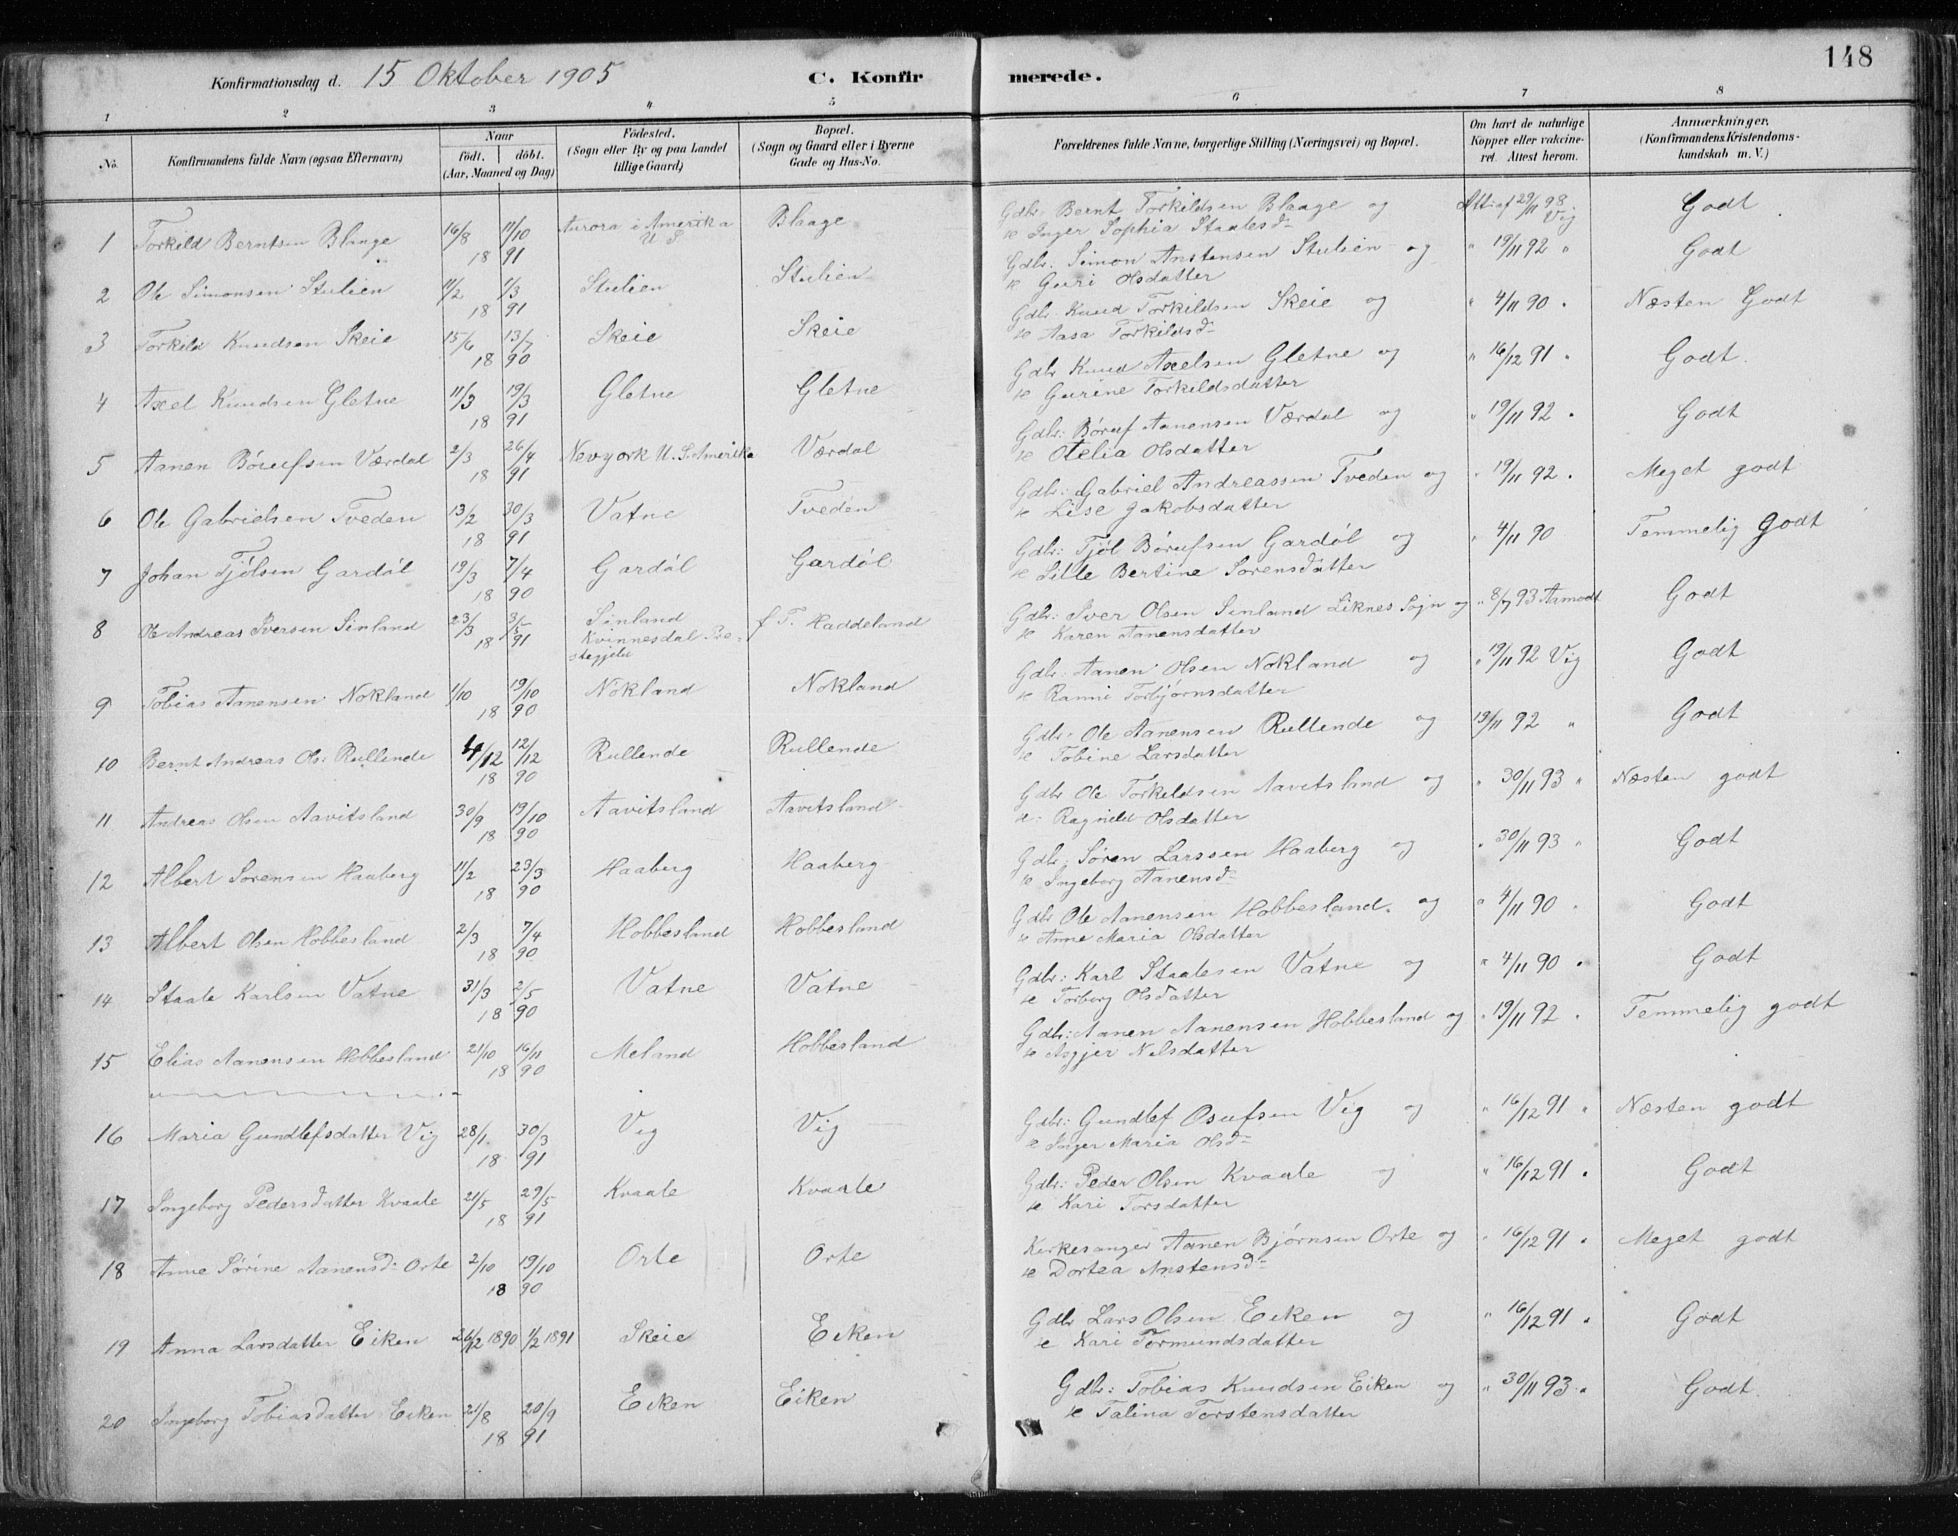 148
Konfirmationsdag d. 15 Oktober 1905 C. Konfirmerede.
1 2 3 4 5 6 7 8
No. Konfirmandens fulde Navn (ogsaa Efternavn) Naar født. døbt. (Aar, Maaned og Dag) Fødested. (Sogn eller By og paa Landet tillige Gaard) Bopæl. (Sogn og Gaard eller i Byerne Gade og Hus-No. Forældrenes fulde Navne, borgerlige Stilling (Næringsvei) og Bopæl. Om havt de naturlige Kopper eller vakcineret. Attest herom. Anmærkninger. (Konfirmandens Kristendomskundskab m. V.)
1 Torkild Berntsen Blaage 16/8 11/10 18 91 Aurora i Amerika U S Blaage Gdbr. Bernt Torkildsen Blaage og Attt af 29/11 98 Vig Godt.
Inger Sophia Staalesd.
2 Ole Simonsen Stulien 11/2 1/3 18 91 Stulien Stulien Gdbr. Simon Anstensen Stulien og " 19/11 92 " Godt
Guri Olsdatter
3 Torkild Knudsen Skeie 15/6 13/7 18 90 Skeie Skeie Gdbr. Knud Torkildsen Skeie og " 4/11 90 " Næsten Godt
Aasa Torkildsd.
4 Axel Knudsen Gletne 11/3 19/3 18 91 Gletne Gletne Gdbr Knud Axelsen Gletne og " 16/12 91 " Godt.
Gurine Torkildsdatter
5 Aanen Børufsen Værdal 2/3 26/4 18 91 Newyork U. S. Amerika Værdal Gdbr. Børuf Aanensen Værdal og " 19/11 92 " Godt
Otelia Olsdatter
6 Ole Gabrielsen Tveden 13/2 30/3 18 91 Vatne Tveden Gdbr: Gabriel Andreassen Tveden og " 19/11 92 " Meget godt
Lise Jakobsdatter
7 Johan Tjølsen Gardøl 19/3 7/4 18 90 Gardøl Gardøl Gdbr: Tjøl Børufsen Gardøl og " 4/11 90 Temmelig Godt
Lille Bertine Sørensdatter
8 Ole Andreas Iversen Sinland 23/3 3/5 18 91 Sinland Kvinnesdal Prestegjeld f T. Haddeland Gdbr: Iver Olsen Sinland Liknes Sogn og " 8/7 93 Aamodt Godt
Karen Aanensdatter
9 Tobias Aanensen Nokland 1/10 19/10 18 90 Nokland Nokland Gdbr: Aanen Olsen Nokland og " 19/11 92 Vig Godt
Ranni Torbjørnsdatter
10 Bernt Andreas Ols: Rullende 4/12 12/12 18 90 Rullende Rullende Gdbr. Ole Aanensen Rullende og 19/11 92 " Godt
Tobine Larsdatter
11 Andreas Olsen Aavitsland 30/9 19/10 18 90 Aavitsland Aavitsland Gdbr Ole Torkildsen Aavitsland og " 30/11 93 " Næsten godt
Ragnild Olsdatter
12 Albert Sørensen Haaberg 11/2 23/3 18 90 Haaberg Haaberg Gdbr: Søren Larssen Haaberg og " 30/11 93 " Godt
Ingeborg Aanensd.
13 Albert Olsen Hobbesland 2/3 7/4 18 90 Hobbesland Hobbesland Gdbr Ole Aanensen Hobbesland. og " 4/11 90 " Godt
Anne Maria Olsdatter
14 Staale Karlsen Vatne 31/3 2/5 18 90 Vatne Vatne Gdbr: Karl Staalesen Vatne og " 4/11 90 " Godt
Torborg Olsdatter
15 Elias Aanensen Hobbesland 21/10 16/11 18 90 Meland Hobbesland Gdbr: Aanen Aanensen Hobbesland og " 19/11 92 " Temmelig godt
Asgjer Nilsdatter
16 Maria Gundlefsdatter Vig 28/1 30/3 18 91 Vig Vig Gdbr: Gundlef Osufsen Vig og " 16/12 91 " Næsten godt
Inger Maria Olsd.
17 Ingeborg Pedersdatter Kvaale 21/5 29/5 18 91 Kvaale Kvaale Gdbr: Peder Olsen Kvaale og " 16/12 91 " Godt
Kari Torsdatter
18 Anne Sørine Aanensd. Orte 2/10 19/10 18 90 Orte Orte Kirkesanger Aanen Bjørnsen Orte og " 16/12 91 " Meget godt
Dortea Anstensd.
19 Anna Larsdatter Eiken 26/12 1890 1/2 1891 Skeie Eiken Gdbr Lars Olsen Eiken og " 16/12 91 " Godt
Kari Tormundsdatter
20 Ingeborg Tobiasdatter Eiken 21/8 20/9 18 91 Eiken Eiken Gdbr: Tobias Knudsen Eiken og " 30/11 93 " Godt.
Talina Torstensdatter